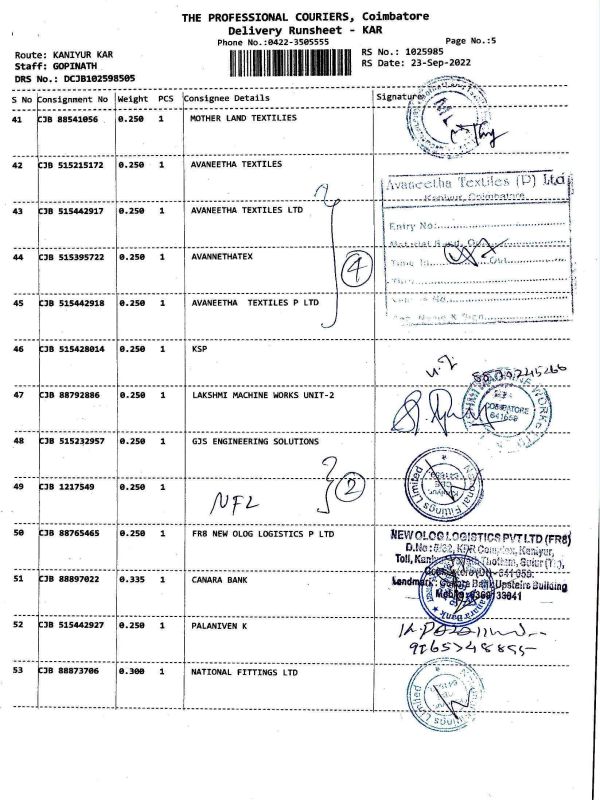 THE PROFESSIONAL COURIERS, Coimbatore
Delivery Runsheet - KAR
Phone No.:0422-3505555
Page No.:5
Route: KANIYUR KAR
RS No.: 1025985
Staff: GOPINATH
RS Date: 23-Sep-2022
DRS No.: DCJB102598505
S No Consignment No Weight PCS Consignee Details Signature
41 CJB 88541056 0.250 1 MOTHER LAND TEXTILIES
42 CJB 515215172 0.250 1 AVANEETHA TEXTILES
Avaneetha Textiles (P) Ltd
Kaniyur, Coimbatore
43 CJB 515442917 0.250 1 AVANEETHA TEXTILES LTD
Entry No:
44 CJB 515395722 0.250 1 AVANNETHATEX
4
Time In Out
45 CJB 515442918 0.250 1 AVANEETHA TEXTILES P LTD
46 CJB 515428014 0.250 1 KSP
47 CJB 88792886 0.250 1 LAKSHMI MACHINE WORKS UNIT-2
COIMBATORE
48 CJB 515232957 0.250 1 GJS ENGINEERING SOLUTIONS
National Fittings Limited
49 CJB 1217549 0.250 1
NFL
2
50 CJB 88765465 0.250 1 FR8 NEW OLOG LOGISTICS P LTD
NEW OLOG LOGISTICS PVT LTD (FR8)
51 CJB 88897022 0.335 1 CANARA BANK
Landmark: Canara Bank Upstairs Building
52 CJB 515442927 0.250 1 PALANIVEN K
53 CJB 88873706 0.300 1 NATIONAL FITTINGS LTD